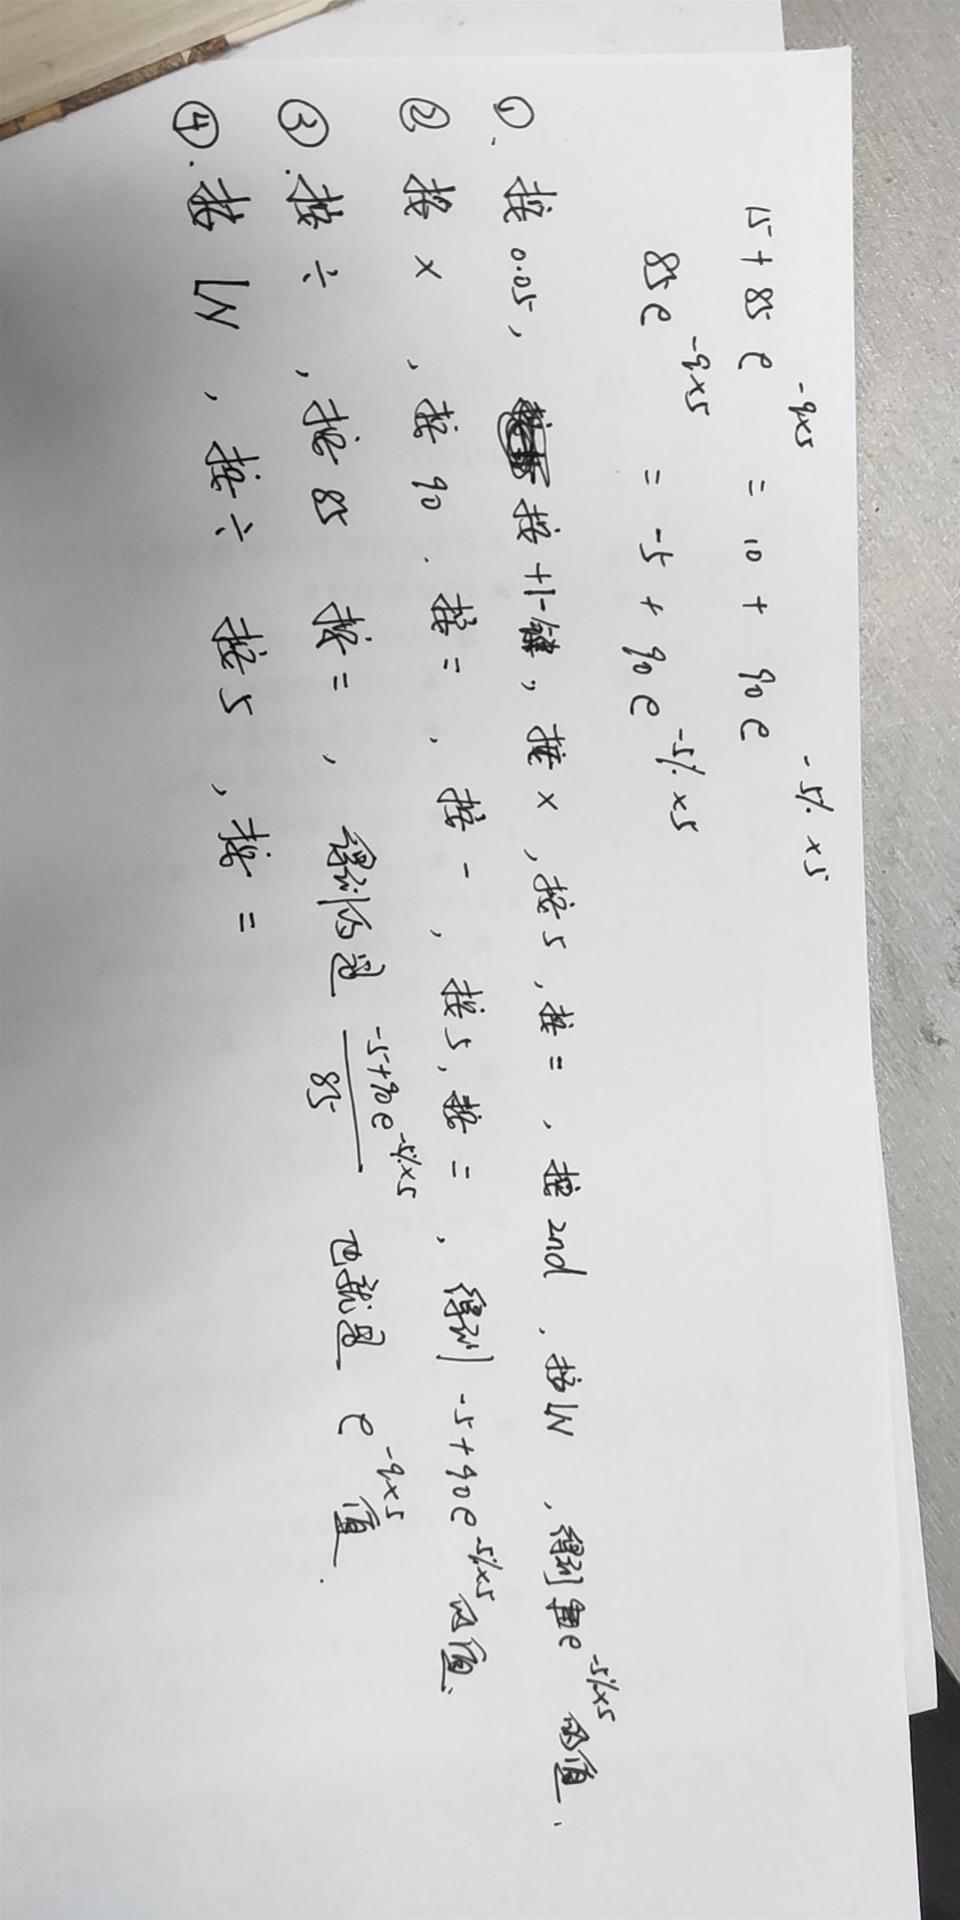 15 + 85e^-q×5 = 10 + 90e^-5%×5
85e^-q×5 = -5 + 90e^-5%×5
①. 按 0.05, 按 +|- 键, 按 ×, 按 5, 按 =, 按 2nd, 按 LN, 得到 e^-5%×5 的值.
② 按 ×, 按 90. 按 =, 按 -, 按 5, 按 =, 得到 -5+90e^-5%×5 的值.
③. 按 ÷, 按 85 按 =, 得到的是 (-5+90e^-5%×5)/85 也就是 e^-q×5 值.
④. 按 LN, 按 ÷ 按 5, 按 =